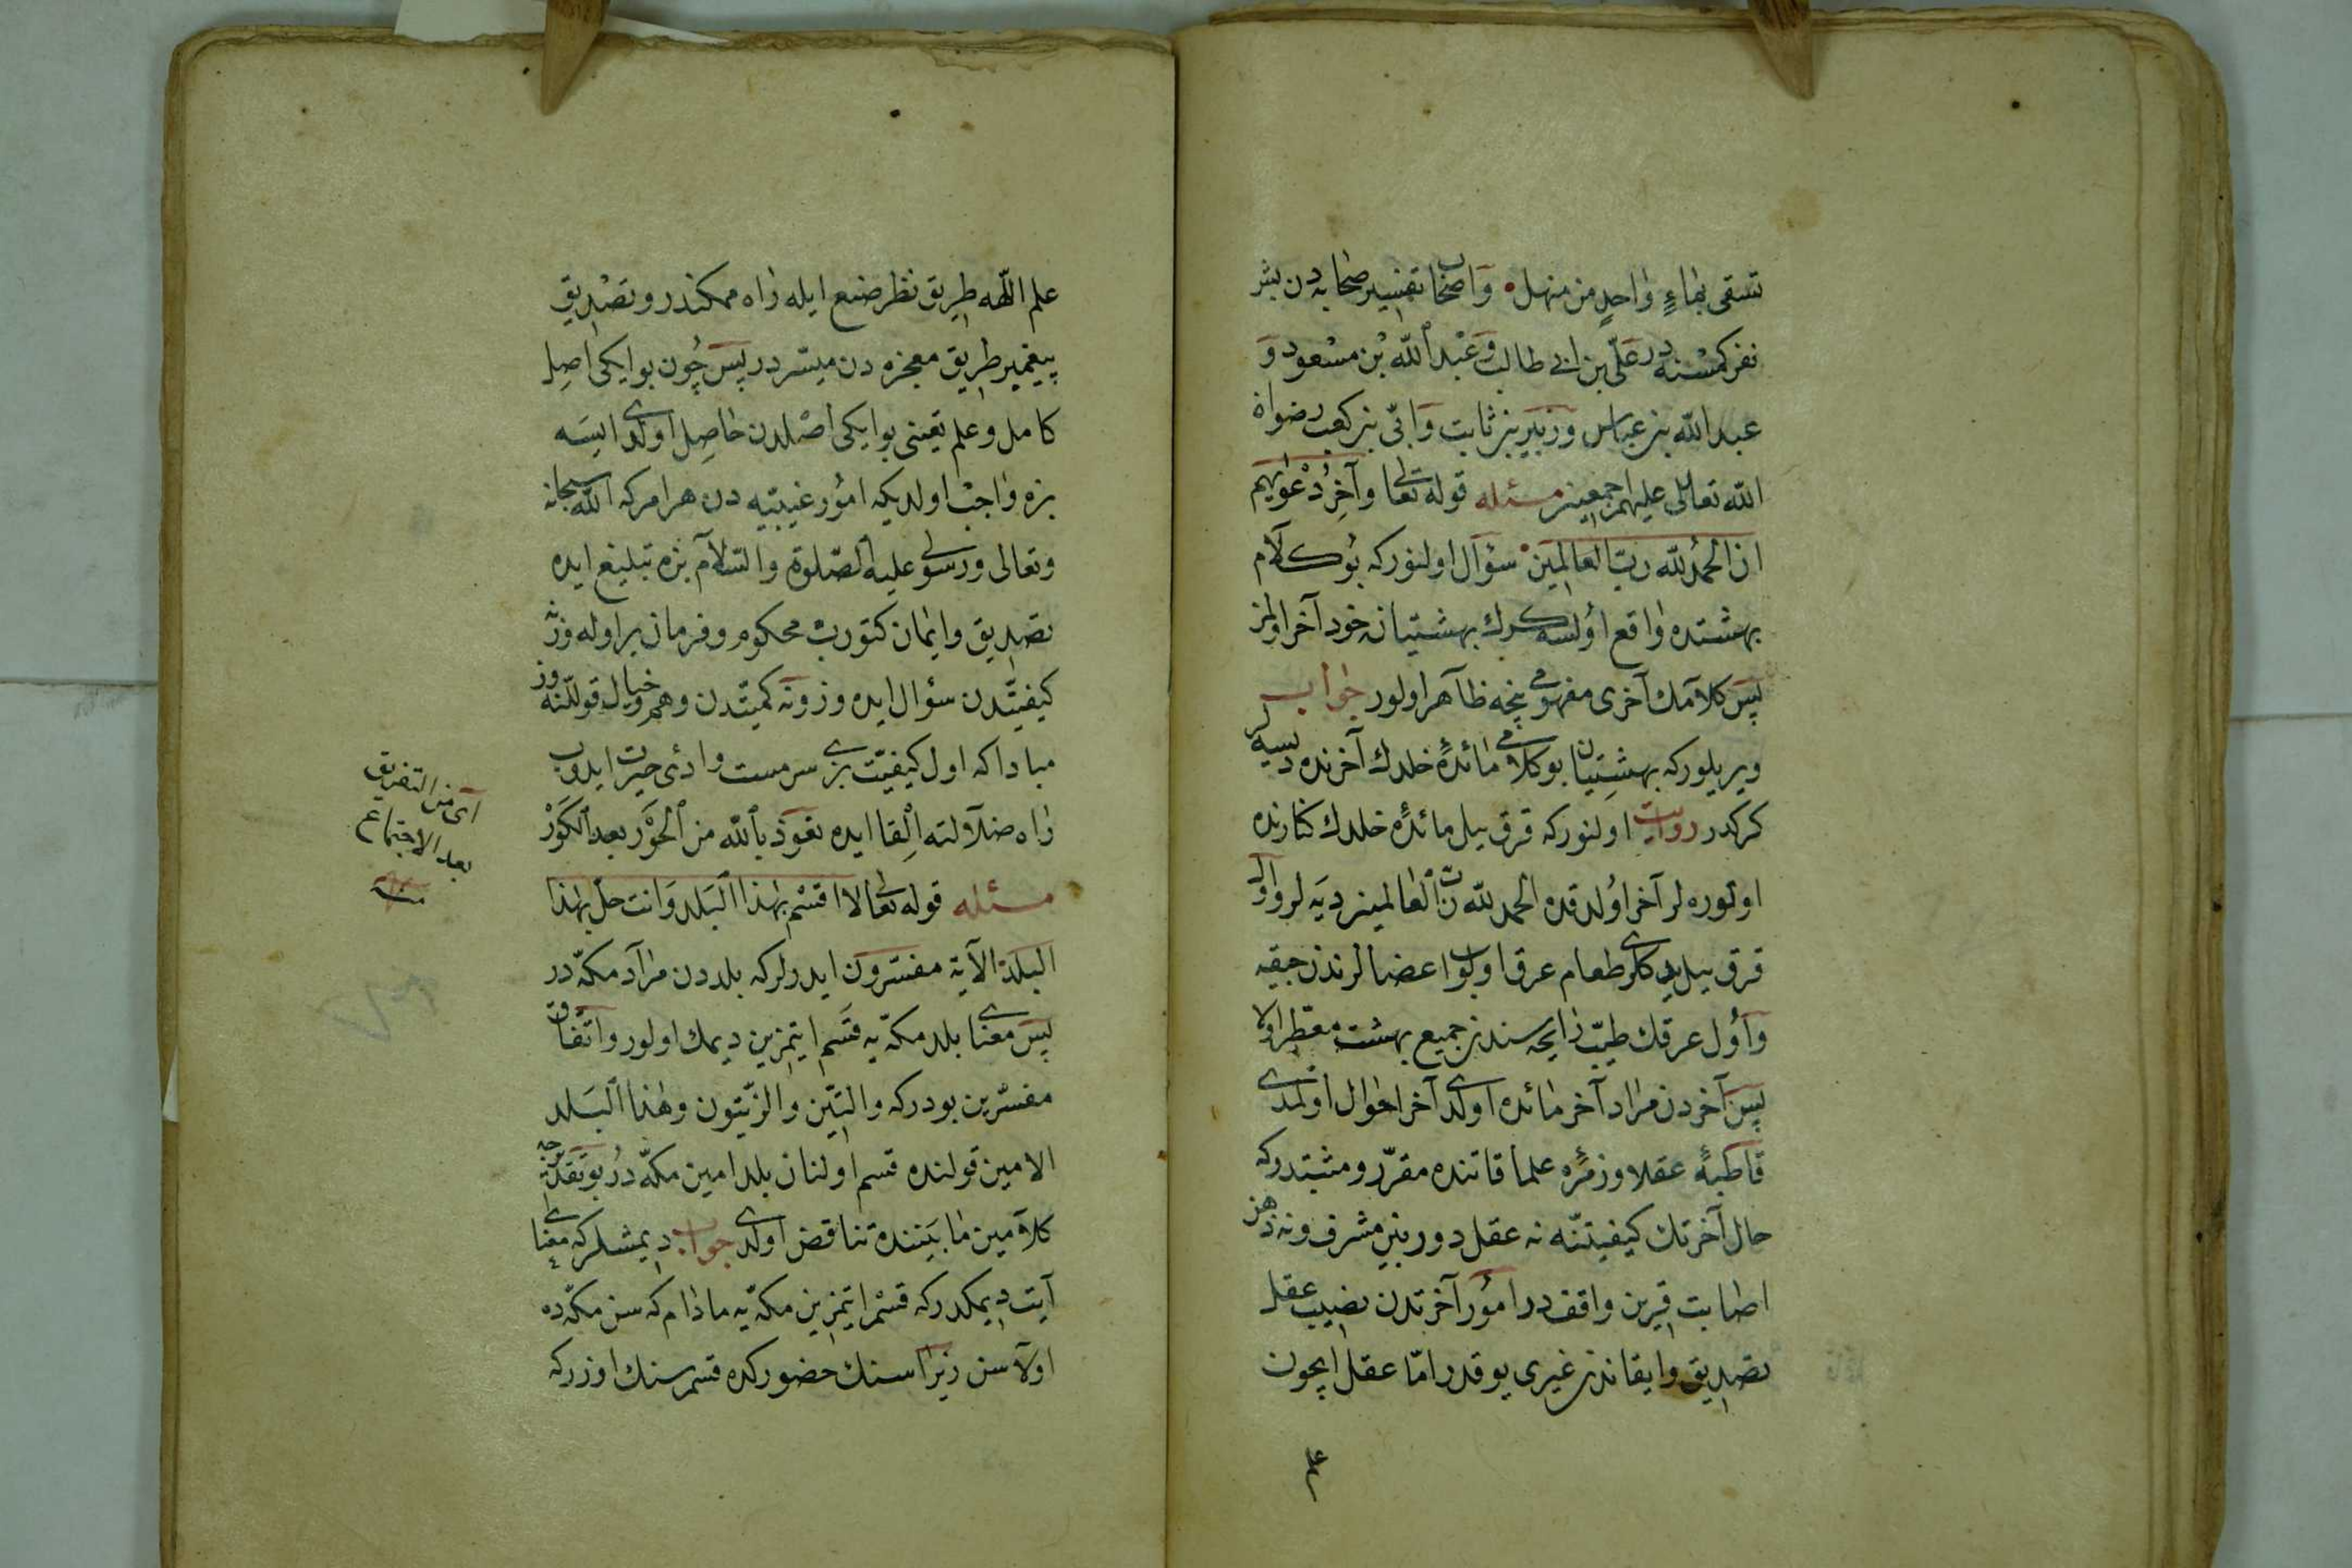 تسقى بماءٍ واحدٍ من منهل • واصحاب تفسير صحابه دن بش
نفر كمسنه در علىّ بن ابى طالب وعبد الله بن مسعود و
عبد الله بن عباس وزبير بن ثابت وابىّ بن كعب رضوان
الله تعالى عليهم اجمعين مسئله قوله تعالى وآخر دعويهم
ان الحمد لله ربّ العالمين سؤال اولنوركه بو كلام
بهشتده واقع اولسه كرك بهشتيان خود آخر اولمز
پس كلامك آخرى مفهومى نيجه ظاهر اولور جواب
ويريلوركه بهشتيان بو كلامى مائدهٔ خلدك آخرنده ديسه لر
كركدر روايت اولنوركه قرق ييل مائدهٔ خلدك كنارنده
اوتوره لر آخر اولدقده الحمد لله ربّ العالمين ديه لر واول
قرق ييل يدكلرى طعام عرق اولوب اعضالرندن چيقه
واول عرقك طيّب رايحه سندن جميع بهشت معطّر اولا
پس آخردن مراد آخر مائده اولدى آخر احوال اولمدى
قاطبهٔ عقلا وزمرهٔ علما قاتنده مقرّر ومثبتدركه
حال آخرتك كيفيتنه نه عقل دوربين مشرف ونه ذهن
اصابت قرين واقفدر امور آخرتدن نصيب عقل
تصديق وايقاندن غيرى يوقدر امّا عقل ايچون
علم
علم اللّهه طريق نظر صنع ايله راه ممكندر وتصديق
پيغمبر طريق معجزه دن ميسّردر پس چون بو ايكى اصل
كامل وعلم يقينى بو ايكى اصلدن حاصل اولدى ايسه
بزه واجب اولديكه امور غيبيّه دن هر امركه الله سبحانه
وتعالى ورسولى عليه الصّلوة والسّلام بزه تبليغ ايده
تصديق وايمان كتوروب محكوم وفرمان بر اوله وز نه
كيفيّتدن سؤال ايده وز ونه كميّتدن وهم وخيال قوللنه وز
مبادا كه اول كيفيّت بزى سرمست وادئ حيرت ايدوب
راه ضلالته القا ايده نعوذ بالله من الحور بعد الكور
مسئله قوله تعالى لا اقسم بهذا البلد وانت حلّ بهذا
البلد الآية مفسّرون ايدرلركه بلددن مراد مكّه در
پس معناى بلد مكّه يه قسم ايتمزين ديمك اولور واتّفاق
مفسّرين بودركه والتّين والزّيتون وهذا البلد
الامين قولنده قسم اولنان بلد امين مكّه در بو تقديرجه
كلامين مابيننده تناقض اولدى جواب ديمشلركه معناى
آيت ديمكدركه قسم ايتمزين مكّه يه مادام كه سن مكّه ده
اولاسن زيرا سنك حضوركده قسم سنك اوزركه
اى من التفريق
بعد الاجتماع
منه